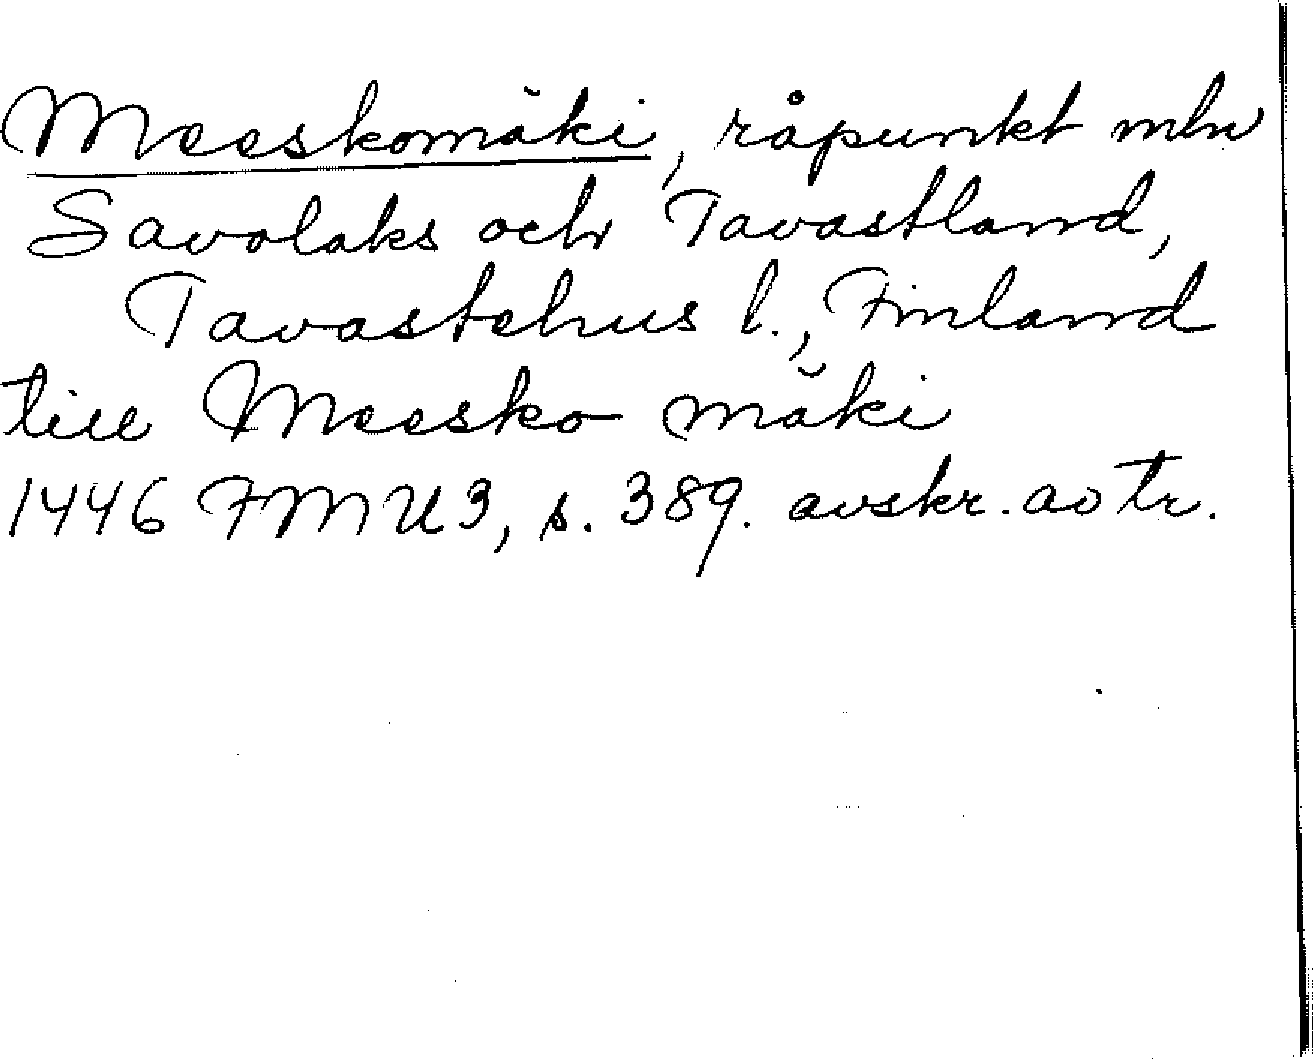 Meeskomäki, råpunkt mln
Savolaks och Tavastland,
Tavastehus l., Finland
till Meesko mäki
1446 FMU 3, s. 389. avskr. av tr.